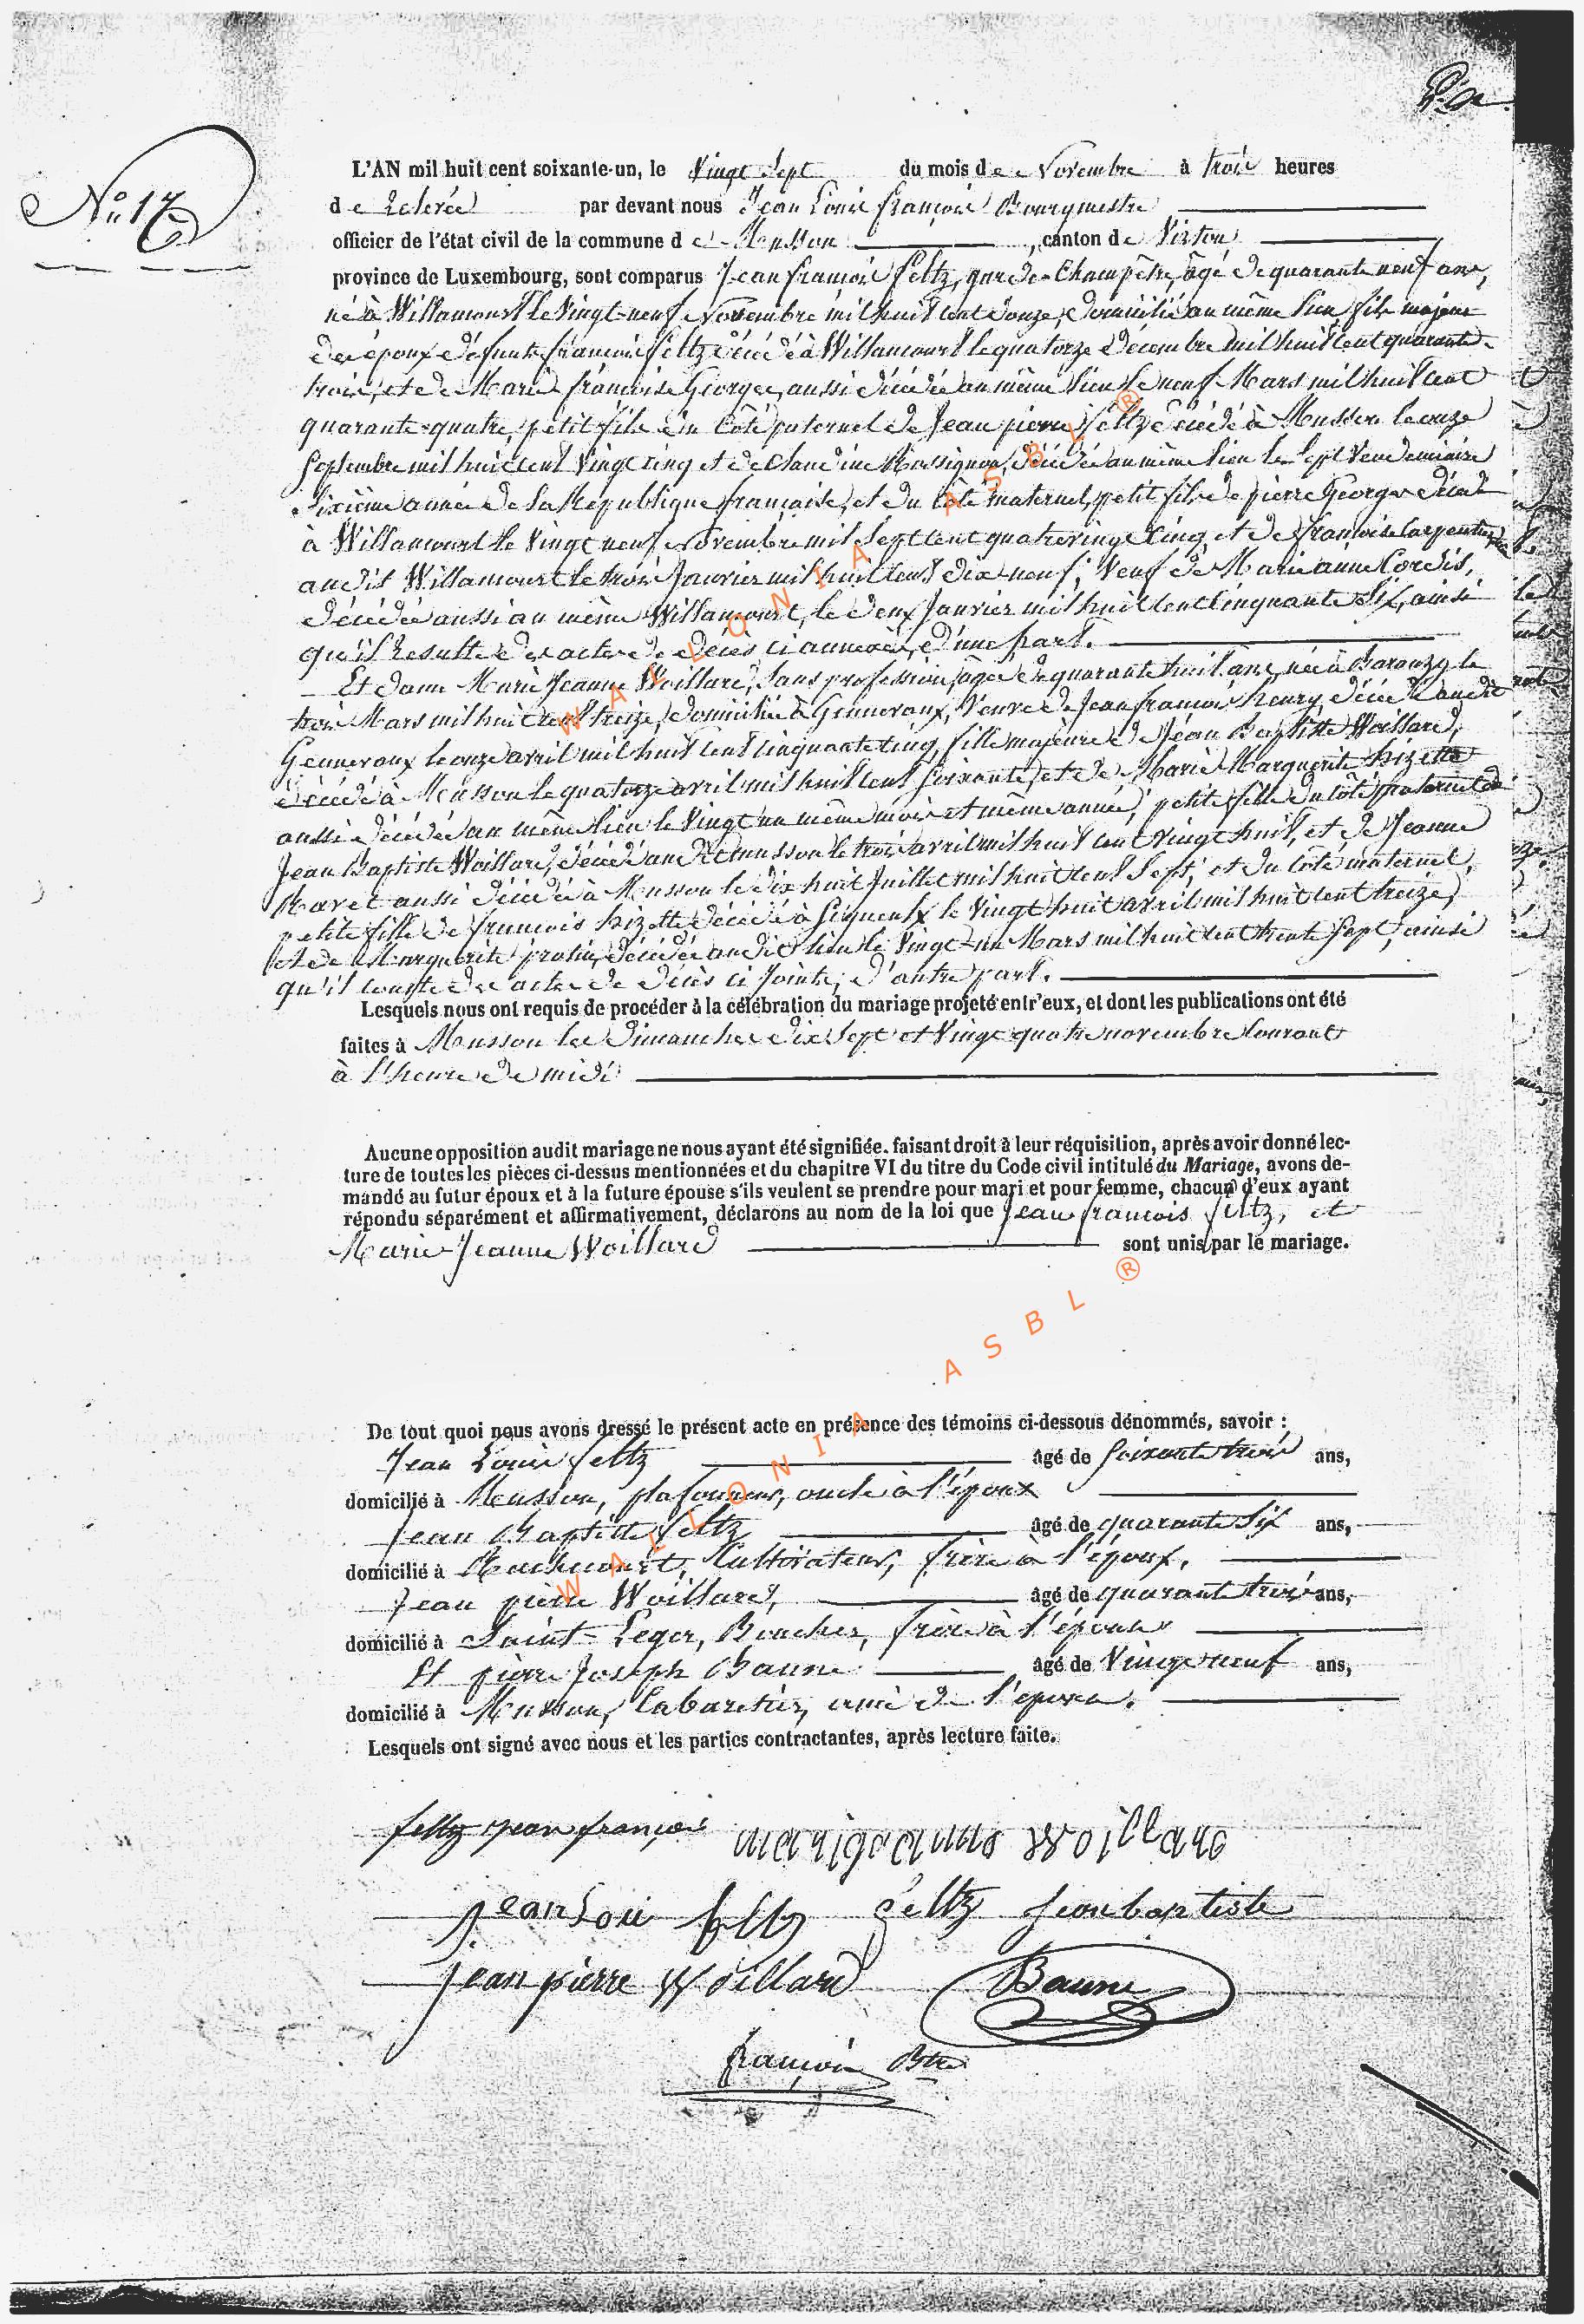 N° 17
L'AN mil huit cent soixante-un, le Vingt Sept du mois de Novembre à trois heures
de Relevée par devant nous Jean Louis françois Bourgmestre
officier de l'état civil de la commune de Musson, canton de Virton
province de Luxembourg, sont comparus Jean françois feltz, garde-Champêtre, âgé de quarante neuf ans,
né à Willancourt le Vingt-neuf Novembre mil huit cent douze, domicilié au même lieu fils majeur
des époux défunts françois feltz décédé à Willancourt le quatorze décembre mil huit cent quarante-
trois, et de Marie françoise Georges, aussi décédée au même lieu le neuf Mars mil huit cent
quarante-quatre, petit fils du Côté paternel de Jean pierre feltz décédé à Musson le onze
Septembre mil huit cent Vingt cinq et de Claudine Rossignon, décédée au même lieu le Sept Vendemiaire
Sixième année de la République française, et du côté maternel, petit fils de pierre Georges décédé
à Willancourt le Vingt neuf Novembre mil Sept cent quatrevingt cinq et de françoise Carpentier
audit Willancourt le trois Janvier mil huit cent dix-neuf; Veuf de Marie anne Cordis,
décédée aussi au même Willancourt, le deux Janvier mil huit cent Cinquante Six, ainsi
qu'il Resulte des actes de décès ci annexés, d'une part.
Et dame Marie Jeanne Woillard, Sans profession, âgée de quarante huit ans, née à Baranzy le
trois Mars mil huit cent treize, domiciliée à Gennevaux, Veuve de Jean françois henry, décédé audit
Gennevaux le onze avril mil huit cent cinquante cinq, fille majeure de Jean Baptiste Woillard,
décédé à Musson le quatorze avril mil huit cent Soixante, et de Marie Marguerite hizette
aussi décédée au même lieu le Vingt un même mois et même année, petite fille du côté paternel de
Jean Baptiste Woillard, décédé audit musson le trois avril mil huit cent Vingt huit, et de Jeanne
Maret aussi décédée à Musson le dix huit Juillet mil huit cent Sept, et du côté maternel,
petite fille de francois hizette décédé à Signeulx le Vingt huit avril mil huit cent treize,
et de Marguerite protin, décédée audit lieu le Vingt-un Mars mil huit cent trente Sept, ainsi
qu'il conste des actes de décès ci Joints, d'autre part.
Lesquels nous ont requis de procéder à la célébration du mariage projeté entr'eux, et dont les publications ont été
faites à Musson les Dimanches dix Sept et Vingt quatre novembre Courant
à l'heure de midi
Aucune opposition audit mariage ne nous ayant été signifiée. faisant droit à leur réquisition, après avoir donné lec-
ture de toutes les pièces ci-dessus mentionnées et du chapitre VI du titre du Code civil intitulé du Mariage, avons de-
mandé au futur époux et à la future épouse s'ils veulent se prendre pour mari et pour femme, chacun d'eux ayant
répondu séparément et affirmativement, déclarons au nom de la loi que Jean francois feltz, et
Marie-Jeanne Woillard sont unis par le mariage.
De tout quoi nous avons dressé le présent acte en présence des témoins ci-dessous dénommés, savoir :
Jean Louis feltz âgé de Soixante trois ans,
domicilié à Musson, plafonneur, oncle à l'époux
Jean Baptiste feltz âgé de quarante Six ans,
domicilié à Rachecourt, Cultivateur, frère à l'époux,
Jean pierre Woillard, âgé de quarante trois ans,
domicilié à Saint-Leger, Boucher, frère à l'épouse
Et pierre Joseph Baune âgé de Vingt neuf ans,
domicilié à Musson, Cabaretier, ami de l'épouse.
Lesquels ont signé avec nous et les parties contractantes, après lecture faite.
feltz jean françois
Jean Loui feltz feltz jean baptiste
Jean pierre Woillard Baune
françois Btre
WALLONIA ASBL ®
WALLONIA ASBL ®